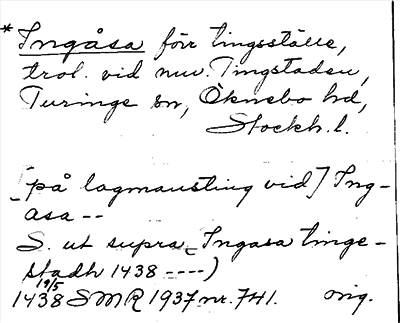 *Ingåsa förr tingsställe,
trol. vid nuv. Tingstaden,
Turinge sn, Öknebo hd,
Stockh. l.
[på lagmansting vid] Ing-
asa --
S. ut supra (Ingasa tinge-
stadh 1438 ----)
19/5
1438 SMR 1937 nr. 741. orig.